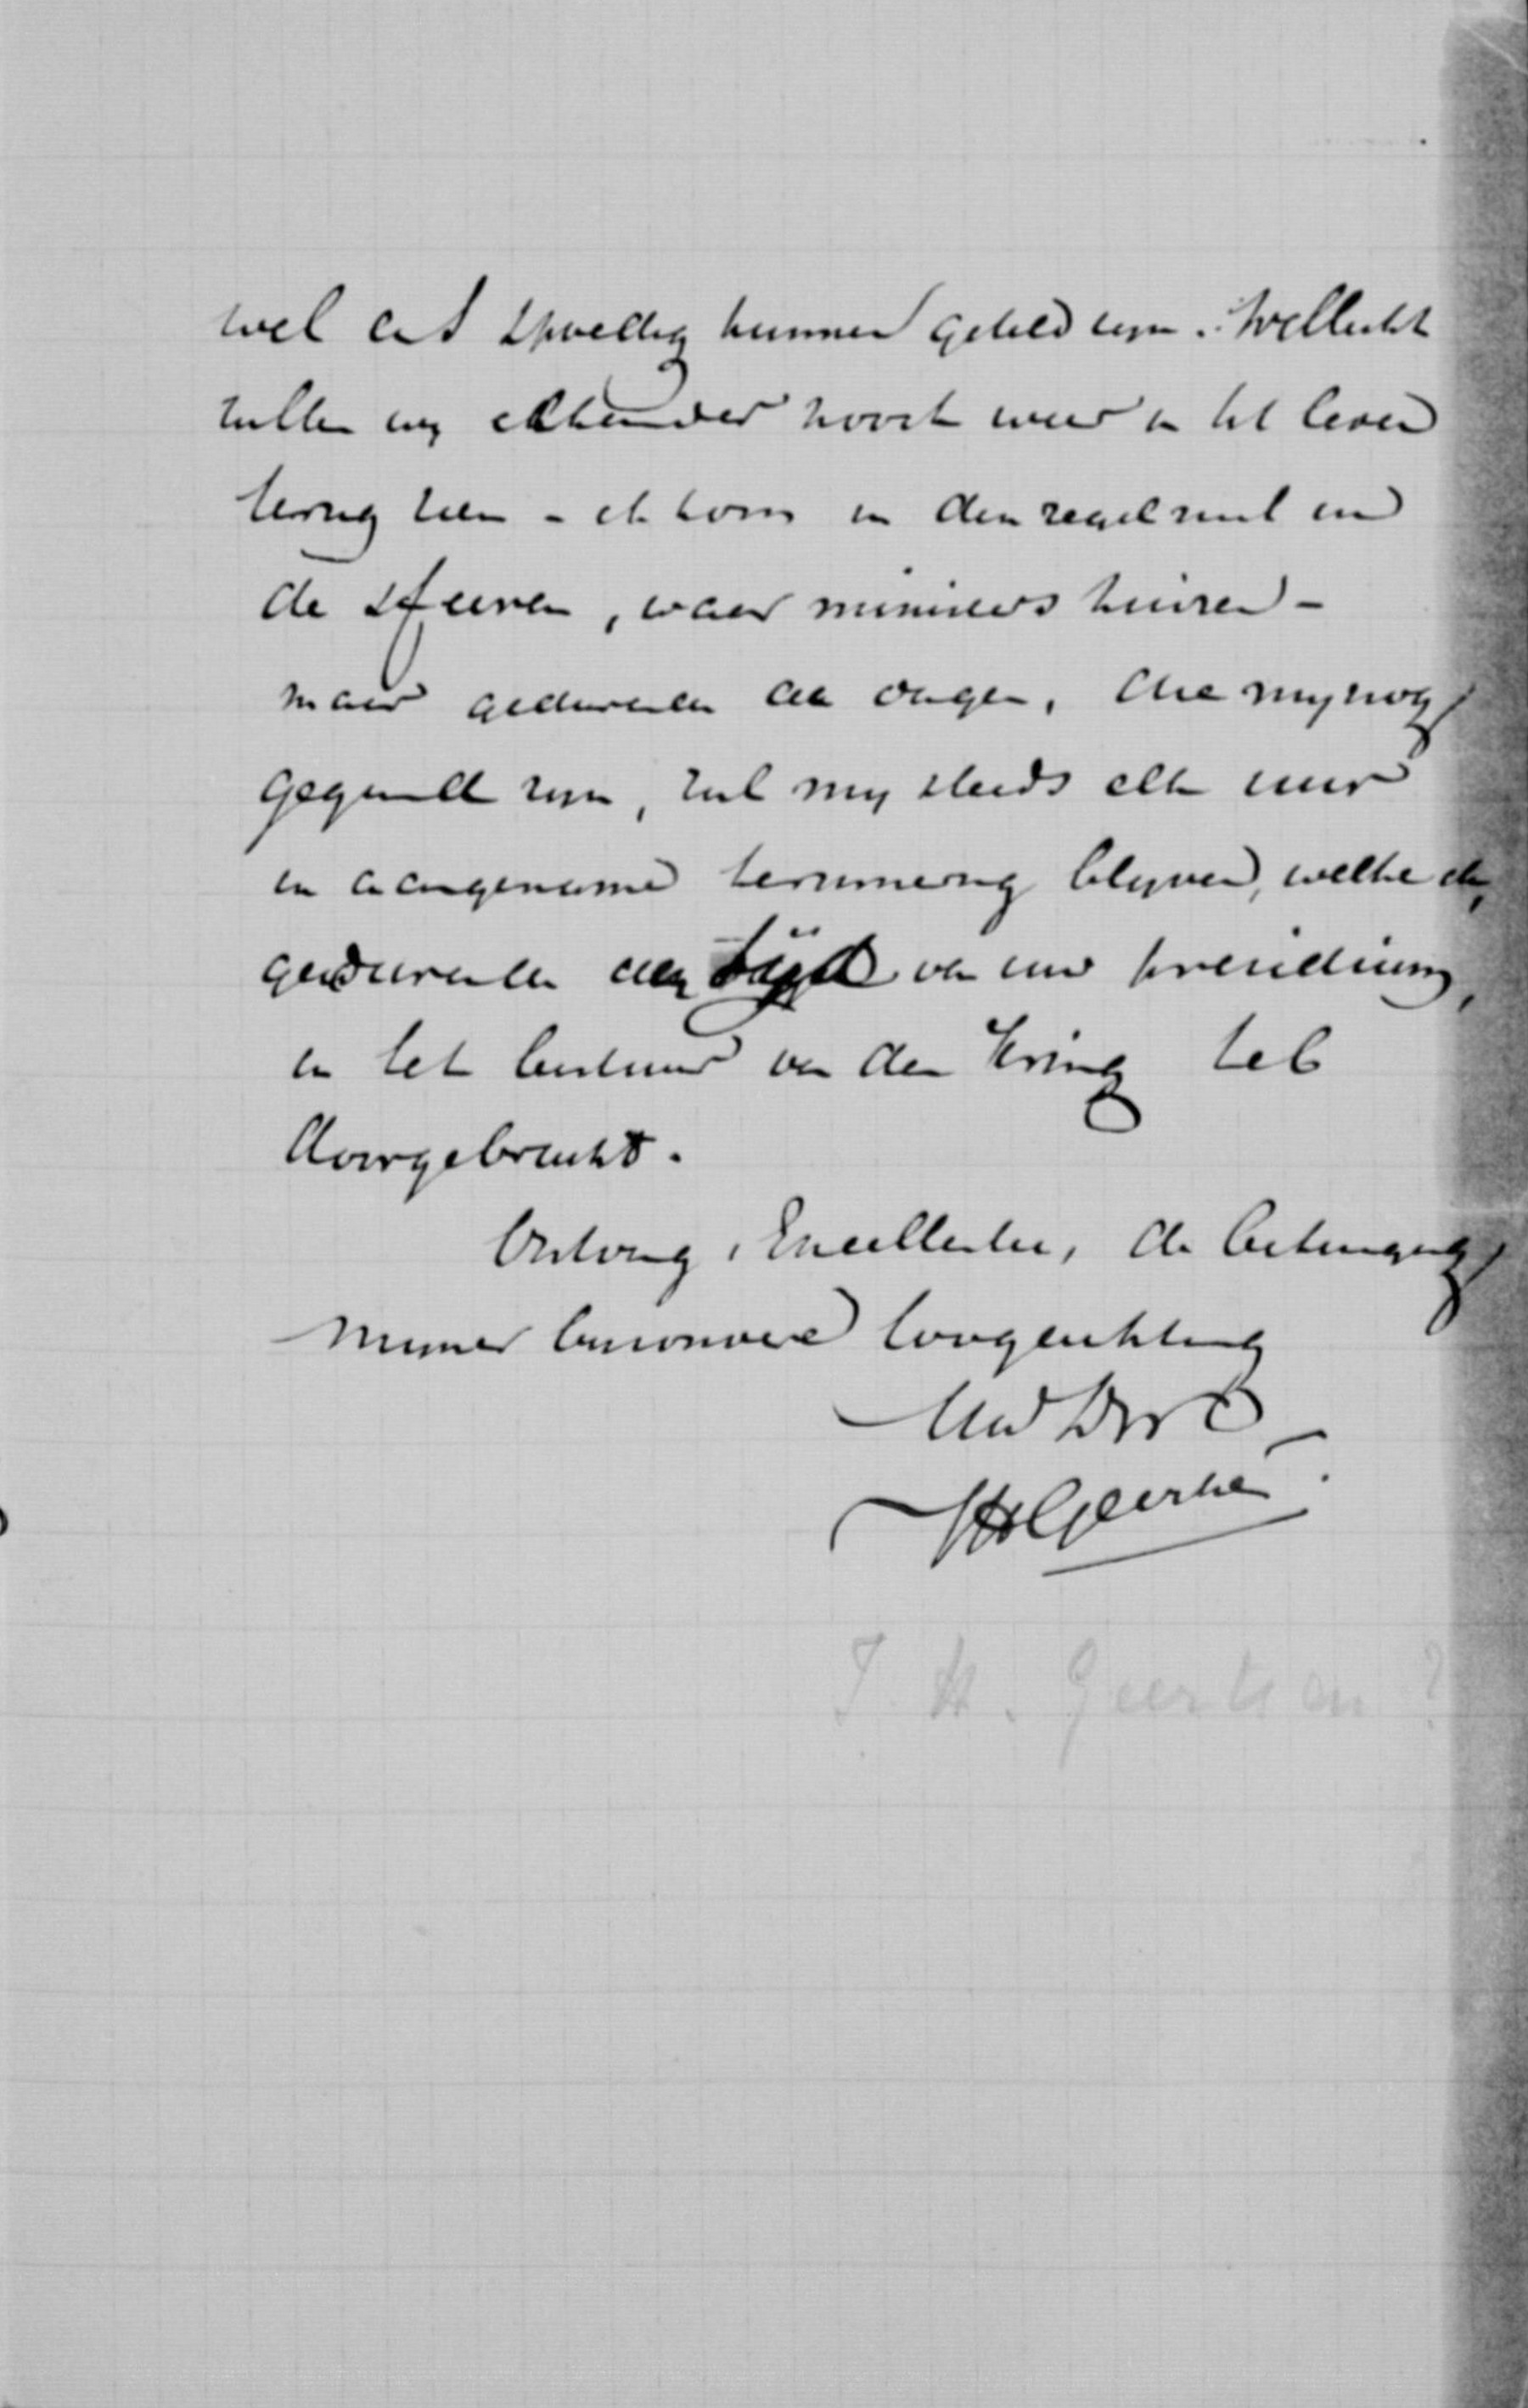 wel als spoedig kunnen geheeld zyn. Wellicht
zullen wy elkander nooit weer in het leven
terug zien - ik kom in den regel niet in
de sferen, waar ministers huizen -
maar gedurende de dagen, die my nog
gegund zyn, zal my steeds elk uur
in aangename herinnering blyven, welke ik,
gedurende den tijd van uw presidium,
in het bestuur van den Kring heb
doorgebracht.
Ontvang, Excellentie, de betuiging
myner byzondere hoogachting
Uw Dr
JHGeertsen
J. H. Geertsen ?